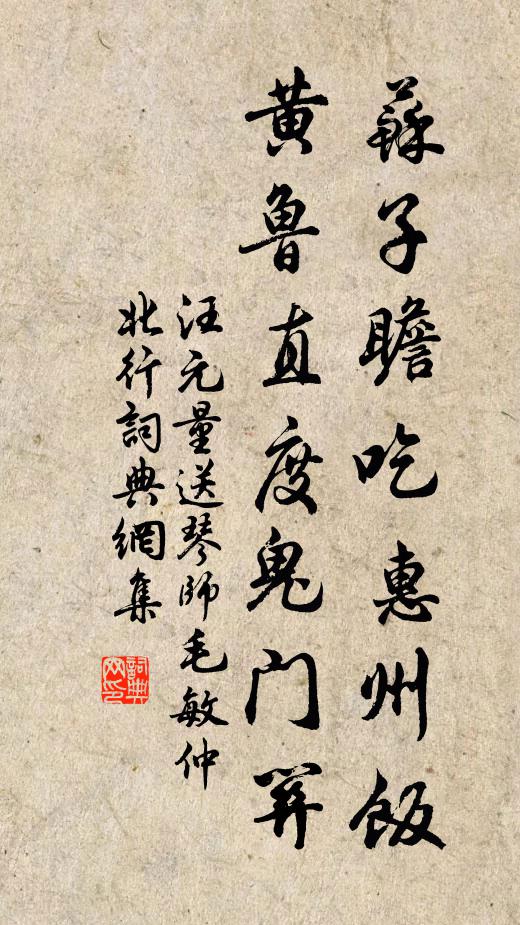 蘇子瞻吃惠州飯
黄魯直度鬼門關
汪元量送琴師毛敏仲
北行詞典網集
詞典
网印